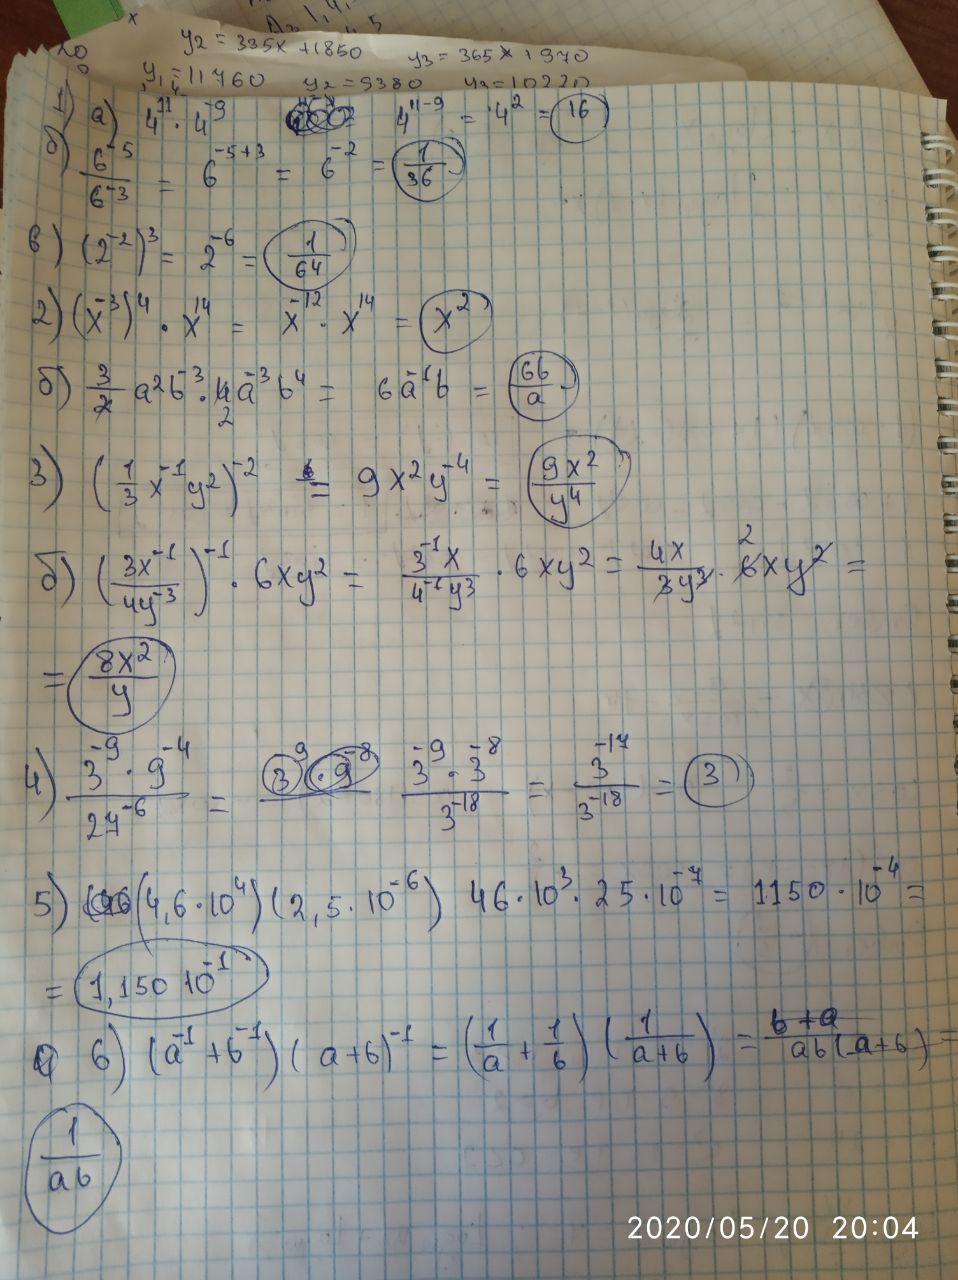 y₂ = 335x + 1850 y₃ = 365x + 970
y₁ = 11760 y₂ = 9380 y₃ = 10220
1) a) 4¹¹ · 4⁻⁹ = 4¹¹⁻⁹ = 4² = 16
б) 6⁻⁵/6⁻³ = 6⁻⁵⁺³ = 6⁻² = 1/36
в) (2⁻²)³ = 2⁻⁶ = 1/64
2) (x⁻³)⁴ · x¹⁴ = x⁻¹² · x¹⁴ = x²
б) 3/2 a²b⁻³ · 4a⁻³b⁴ = 6a⁻¹b = 6b/a
3) (1/3 x⁻¹y²)⁻² = 9x²y⁻⁴ = 9x²/y⁴
б) (3x⁻¹/4y⁻³)⁻¹ · 6xy² = 3⁻¹x/4⁻¹y³ · 6xy² = 4x/3y³ · 6xy² =
= 8x²/y
4) 3⁻⁹ · 9⁻⁴/27⁻⁶ = 3⁻⁹ · 3⁻⁸/3⁻¹⁸ = 3⁻¹⁷/3⁻¹⁸ = 3
5) (4,6 · 10⁴)(2,5 · 10⁻⁶) 46 · 10³ · 25 · 10⁻⁷ = 1150 · 10⁻⁴ =
= 1,150 10⁻¹
6) (a⁻¹ + b⁻¹)(a + b)⁻¹ = (1/a + 1/b)(1/a+b) = b+a/ab(a+b) =
1/ab
2020/05/20 20:04